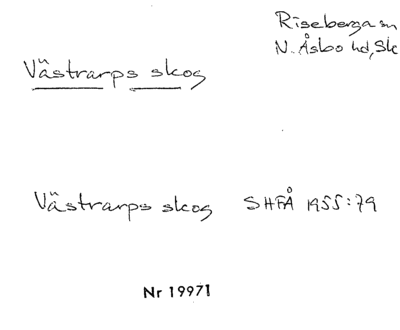 Riseberga sn
N. Åsbo hd, Sk
Västrarps skog
Västrarps skog SHFÅ 1955:79
Nr 19971